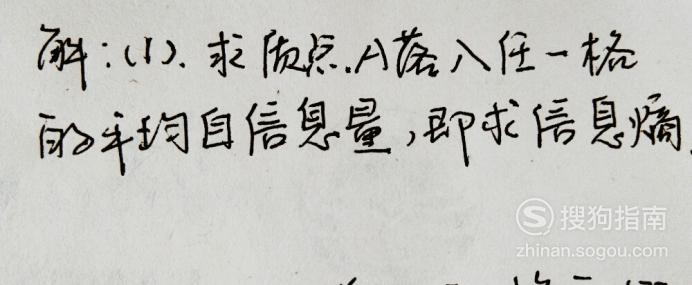 解:(1).求质点A落入任一格
的平均自信息量,即求信息熵.
搜狗指南
zhinan.sogou.com